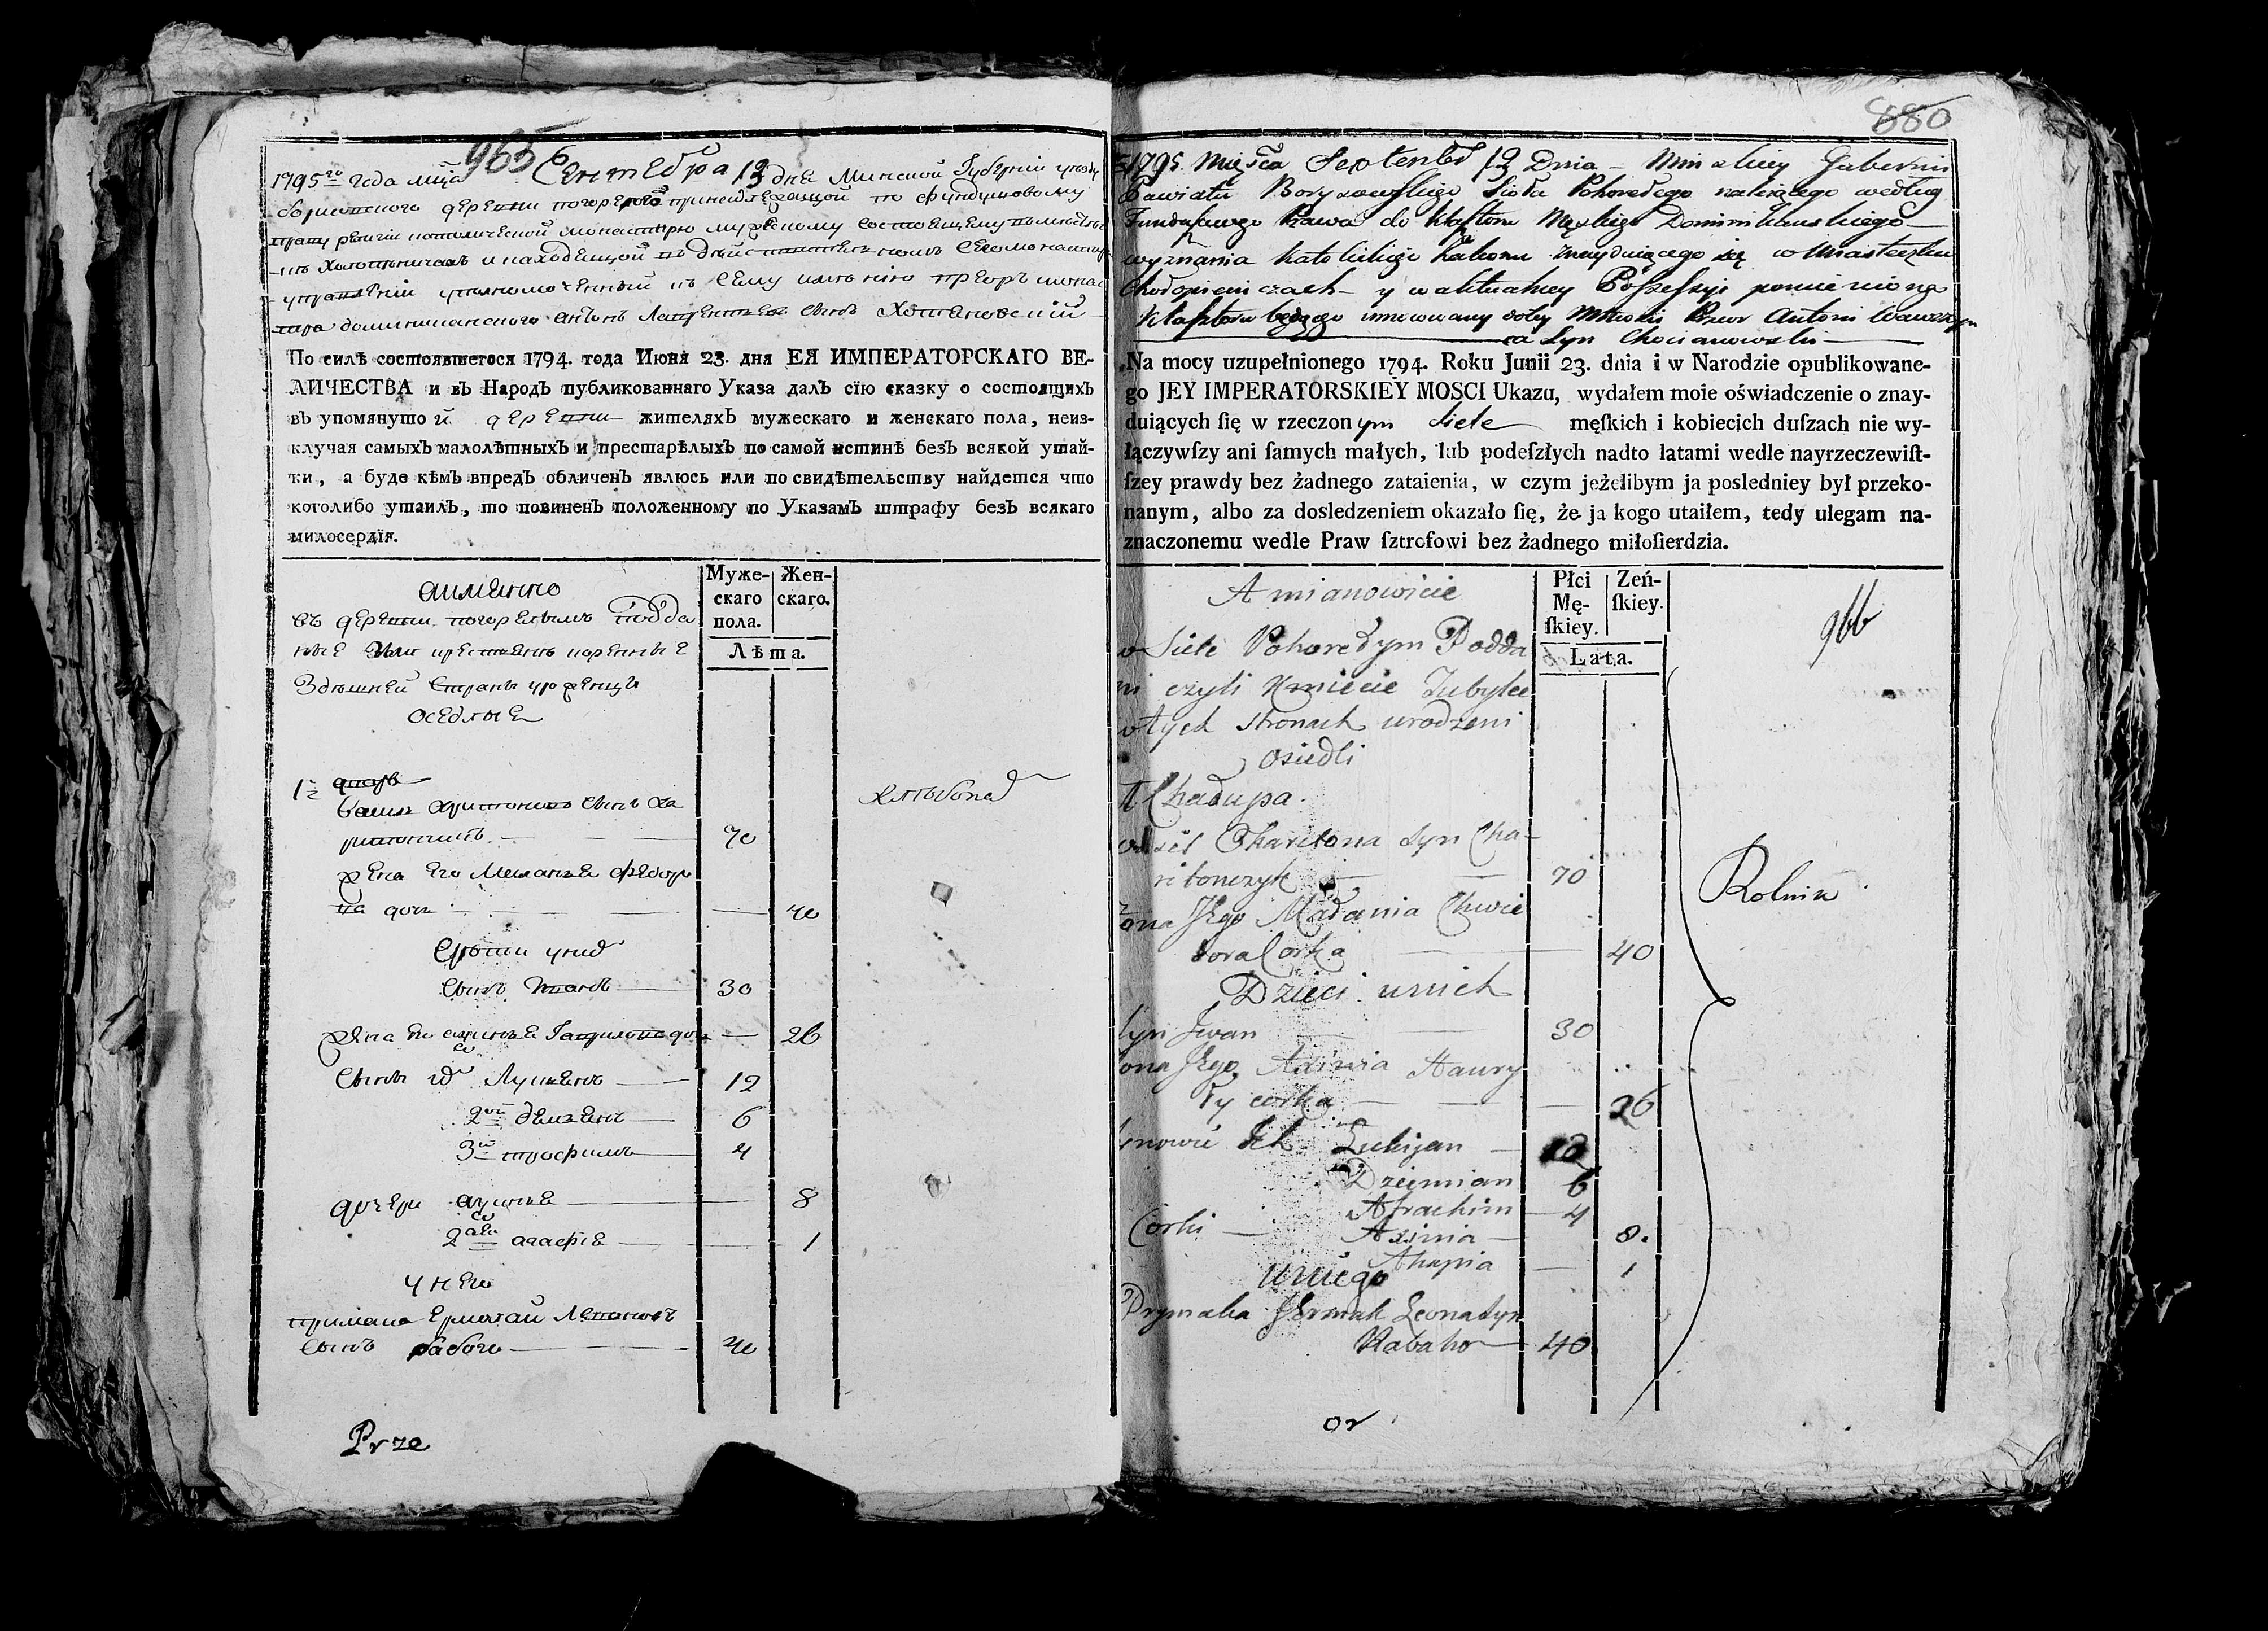 965
1795го года мца Сентебра 13 дня Минской Губернїи уѣзду
борисовского деревни погорелой принадлежащой по фундушовому
праву религии католической монастирю мужескому состоящему въ местеч
-къ Холопеничахъ и находящой въ действителномъ сего монастир
управленїи уполномоченный къ сему имѣнїю прїоръ монас
тира доминиканского антонъ Лаврентьев сынъ Хотяновскїй
По силѣ состоявшегося 1794. года Июня 23. дня ЕЯ ИМПЕРАТОРСКАГО ВЕ-
ЛИЧЕСТВА и въ Народъ публикованнаго Указа далъ сїю сказку о состоящихъ
въ упомянутой деревни жителяхъ мужескаго и женскаго пола, неиз-
ключая самыхъ малолѣтныхъ и престарѣлыхъ по самой истинѣ безъ всякой утай-
ки, а буде кѣмъ впредъ обличенъ явлюсь или по свидѣтельству найдется что
коголибо утаилъ, то повиненъ положенному по Указамъ штрафу безъ всякаго
милосердїя.
Муже-
скаго
пола.
Жен-
скаго.
Лѣта.
аимянно
въ деревни погорелымъ подда
ные или крестьянъ коренные
Здешней страны уроженцы
оседлые
1й
харитоновъ сынъ ха
ритончикъ 70
хлѣбопа
жена его Меланья федоро
ва дочь 40
у них
сынъ иванъ 30
жена его аксинья Гаврилова дочь 26
сыны 1й Лукьянъ 12
2й демьянъ 6
3й трофимъ 4
дочери аксинья 8
2ая агафїя 1
у него
примака Ермолай Леоновъ
сынъ рабого 40
Prze
880
1795 Miesca September 13 Dnia - Minskiey Gubernii
Powiatu Borysowskiego Sioła Pohorełego należącego według
Funduszowego Prawa do klasztoru Męskiego Dominikanskiego
wyznania katolickiego Zakonu znayduiącego się w Miasteczku
Chołopieniczach y w aktualney Possessyi pomienionego
Klasztoru będącego umocowany Przeor Antoni Wawrzyn
ca Syn Chocianowski
Na mocy uzupełnionego 1794. Roku Junii 23. dnia i w Narodzie opublikowane-
go JEY IMPERATORSKIEY MOSCI Ukazu, wydałem moie oświadczenie o znay-
duiących ſię w rzeczonym Siele męſkich i kobiecich duſzach nie wy-
łączywſzy ani ſamych małych, lub podeſzłych nadto latami wedle nayrzeczewiſt-
ſzey prawdy bez żadnego zataienia, w czym jeżelibym ja posledniey był przeko-
nanym, albo za dosledzeniem okazało ſię, że ja kogo utaiłem, tedy ulegam na-
znaczonemu wedle Praw ſztrofowi bez żadnego miłoſierdzia.
Płci
Mę-
ſkiey.
Zeń-
ſkiey.
Lata.
966
A mianowicie
w Siele Pohorełym Podda
ni czyli Kmiecie Tubylce
w tych stronach urodzeni
osiedli
Chałupa.
Charitona Syn Cha-
ritonczyk 70
Rolnik
żona Jego Małania Chwie
dora Corka 40
Dzieci u nich
syn Jwan 30
żona Jego Axinia Hawry
ły corka 26
synowie Ich Łukijan 12
Dziemian 6
Atrachim 4
Corki Axinia 8.
Ahapia 1
u niego
Prymaka Jermak Leona Syn
Rabaho 40
or